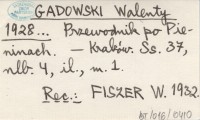 GADOWSKI Walenty
1928... Przewodnik po Pie-
ninach. — Kraków. Ss. 37,
nlb. 4, il., m. 1.
Rec.: FISZER W. 1932.
bt/016/0410